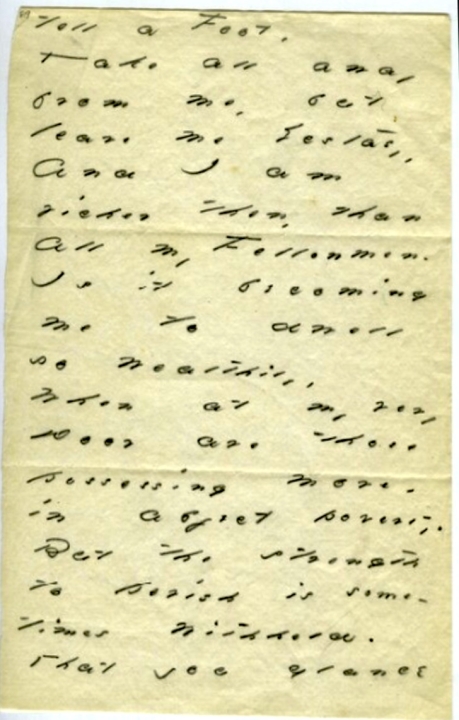 a Foot.
Take all away
from me, but
leave me Ecstasy,
And I am
richer then, than
All my Fellowmen.
Is it becoming
me to dwell
so wealthily,
When at my very
Door are those
possessing more,
in abject poverty.
But the strength
to perish is some-
times withheld.
That you glance